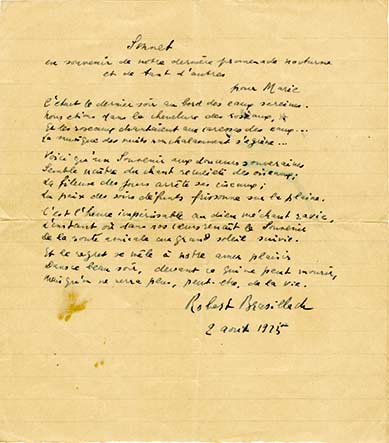 Sonnet
en souvenir de notre dernière promenade nocturne
et de tant d'autres
pour Marie
C'était le dernier soir au bord des eaux sereines.
Nous étions dans la chevelure des roseaux,
Et les roseaux chantaient aux caresses des eaux...
La musique des nuits en chalonnant s'égrène...
Voici qu'un Souvenir aux douceurs souveraines
Semble naître du chant des oiseaux;
La fileuse des jours arrête ses ciseaux;
La paix des soirs défunts frissonne sur la plaine.
C'est l'heure impérissable au dieu méchant ravie,
L'instant où dans nos cœurs renaît le Souvenir
De la route amicale au grand soleil suivie.
Et le regret se mêle à notre amer plaisir
Dans ce beau soir, devant ce qui ne peut mourir,
Mais qu'on ne verra plus, peut-être, de la vie.
Robert Brasillach
2 août 1925